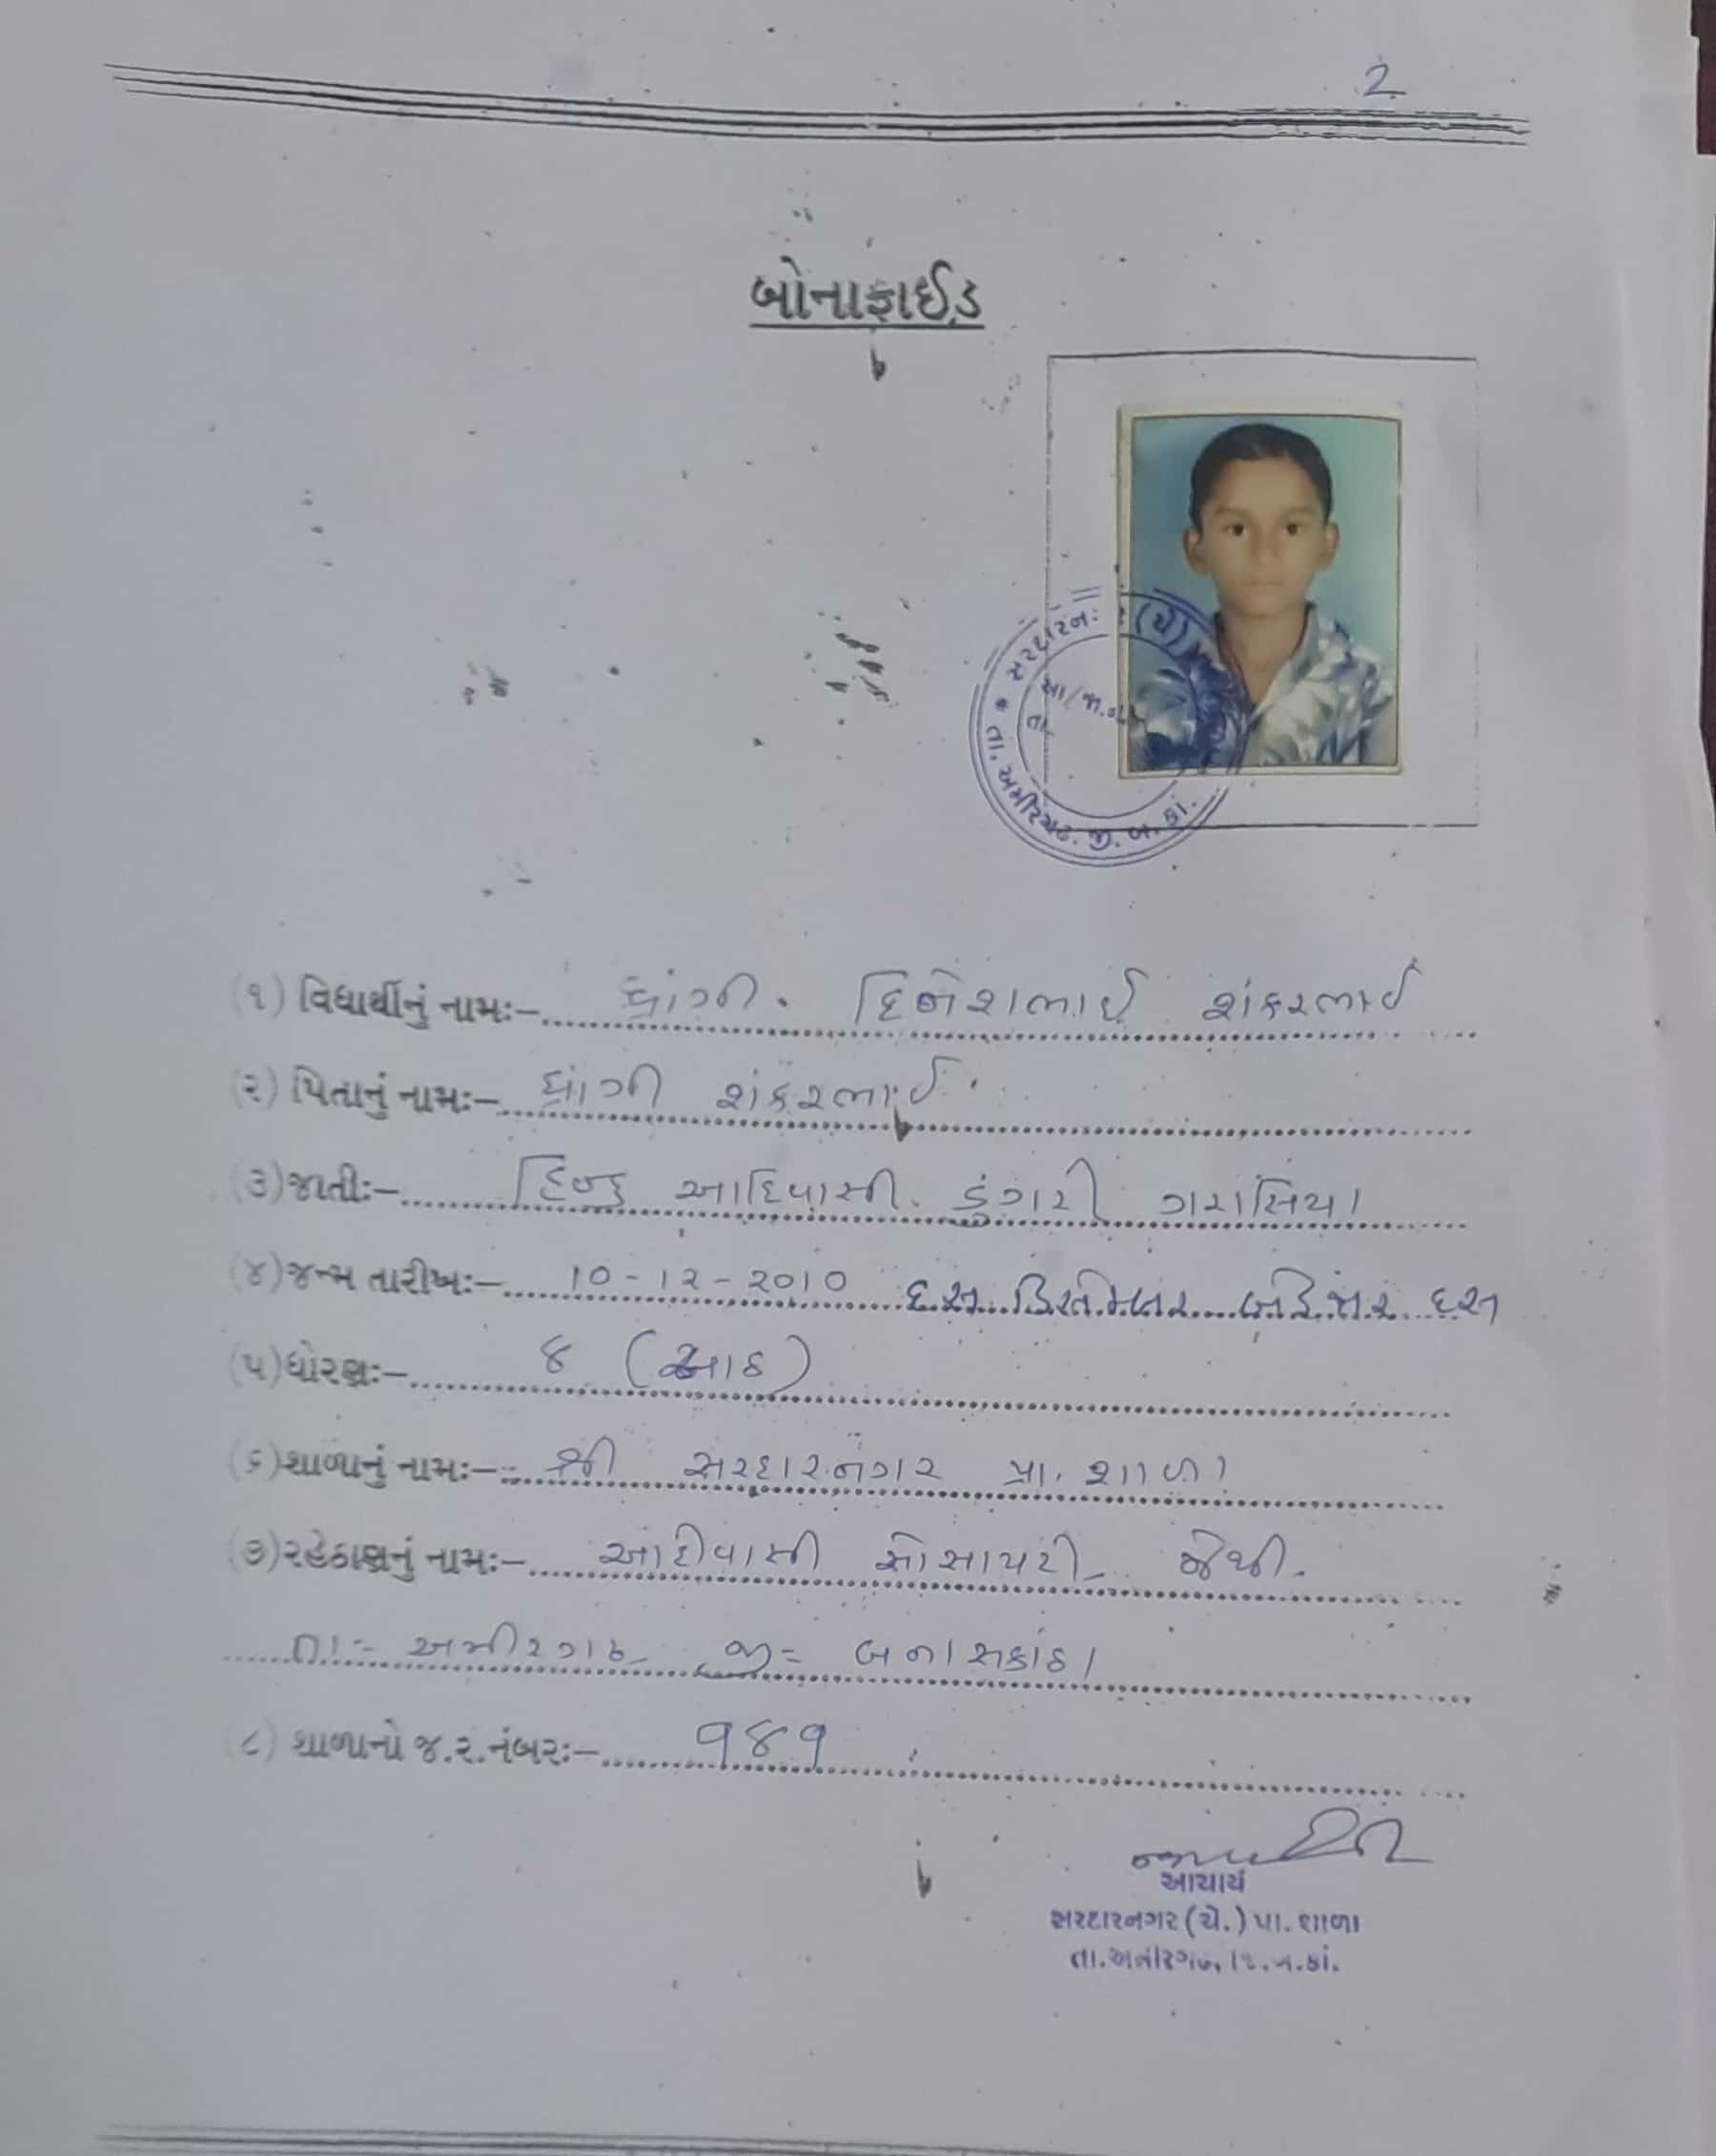 2
બોનાફાઈડ
(૧) વિદ્યાર્થીનું નામઃ- ધ્રાંગી. દિનેશભાઈ શંકરભાઈ
(૨) પિતાનું નામઃ- ધ્રાંગી શંકરભાઈ.
(૩) જાતીઃ- હિન્દુ આદિવાસી. ડુંગરી ગરાસિયા
(૪) જન્મ તારીખઃ- 10-12-૨010 દસ ડિસેમ્બર બે હજાર દસ
(૫) ધોરણઃ- ૪ (આઠ)
(૬) શાળાનું નામઃ- શ્રી સરદારનગર પ્રા. શાળા
(૭) રહેઠાણનું નામઃ- આદીવાસી સોસાયટી જેથી.
તાઃ- અમીરગઢ જી= બનાસકાંઠા
(૮) શાળાનો જ.ર.નંબરઃ- ૧૪૧
આચાર્ય
સરદારનગર (ચે.) પ્રા. શાળા
તા. અમીરગઢ